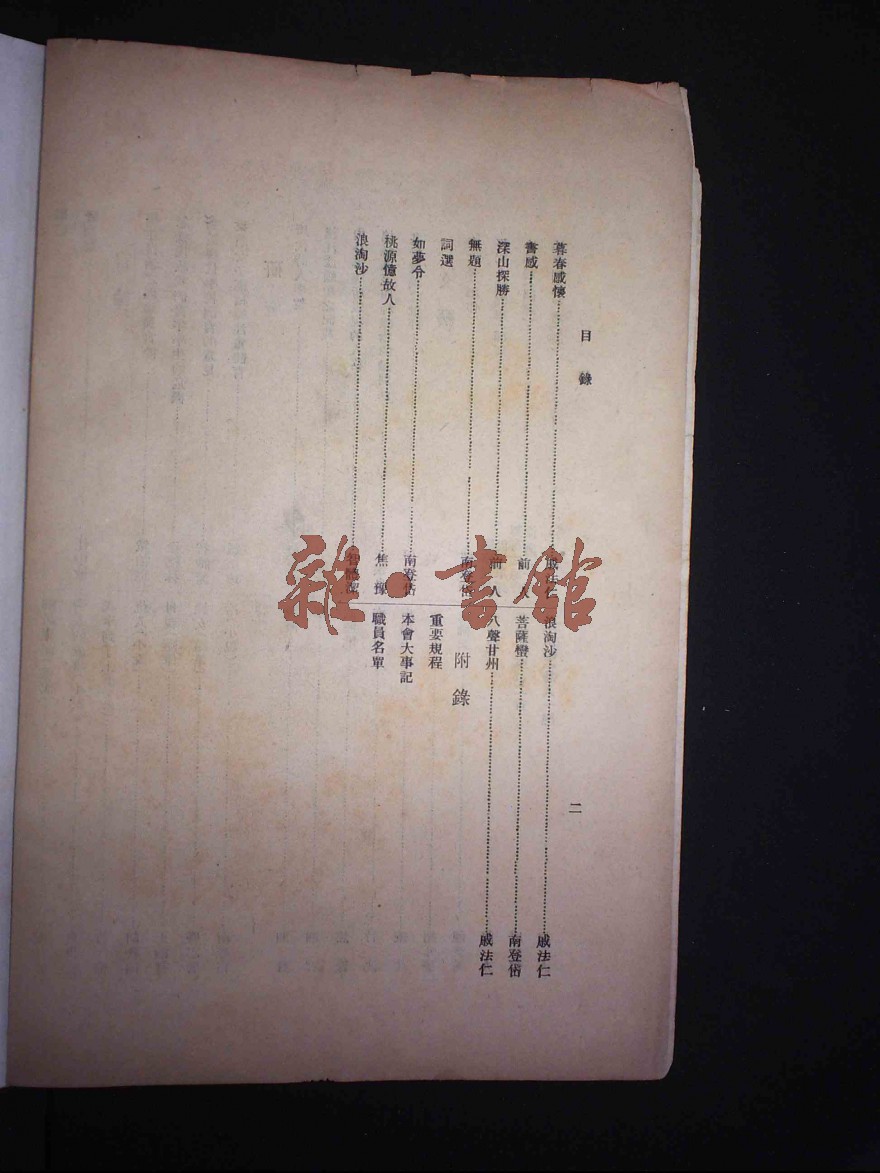 目錄
二
暮春感懷 戚法仁
書感 前人
深山探勝 前人
無題 南登岱
詞選
如夢令 南登岱
桃源憶故人 焦豫
浪淘沙
浪淘沙 戚法仁
菩薩蠻 南登岱
八聲甘州 戚法仁
附錄
重要規程
本會大事記
職員名單
雜·書館